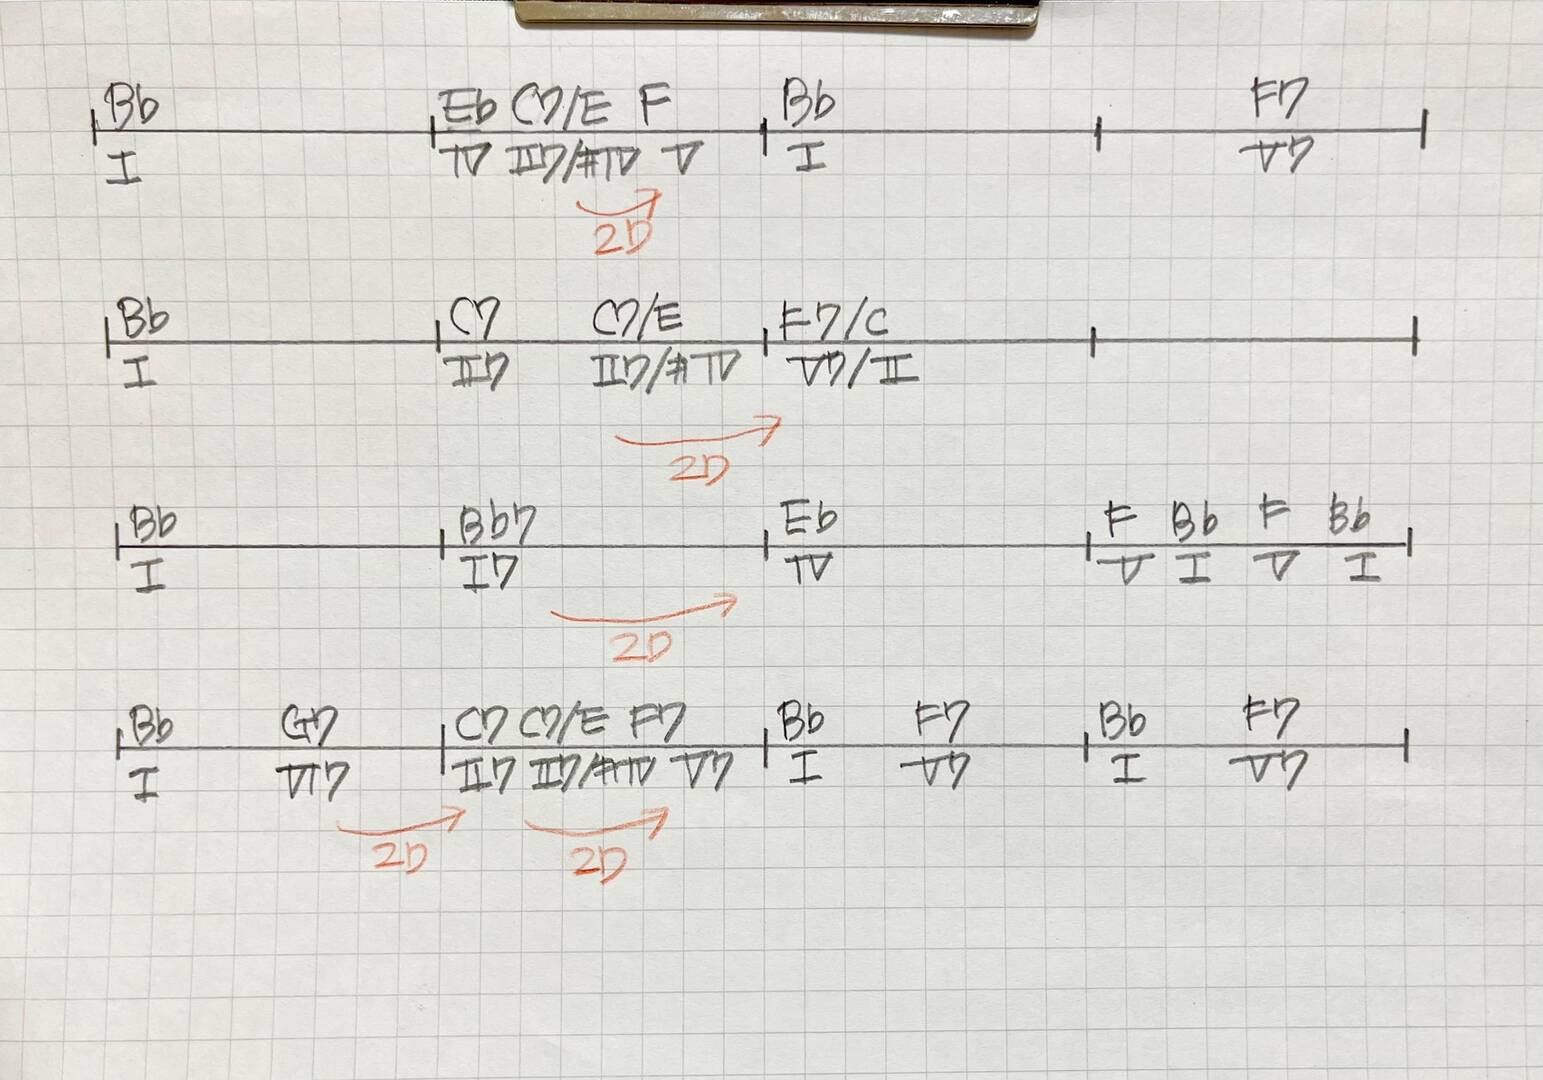 Bb Eb C7/E F Bb F7
I IV II7/#IV V I V7
2D
Bb C7 C7/E F7/C
I II7 II7/#IV V7/II
2D
Bb Bb7 Eb F Bb F Bb
I I7 IV V I V I
2D
Bb G7 C7 C7/E F7 Bb F7 Bb F7
I VI7 II7 II7/#IV V7 I V7 I V7
2D 2D